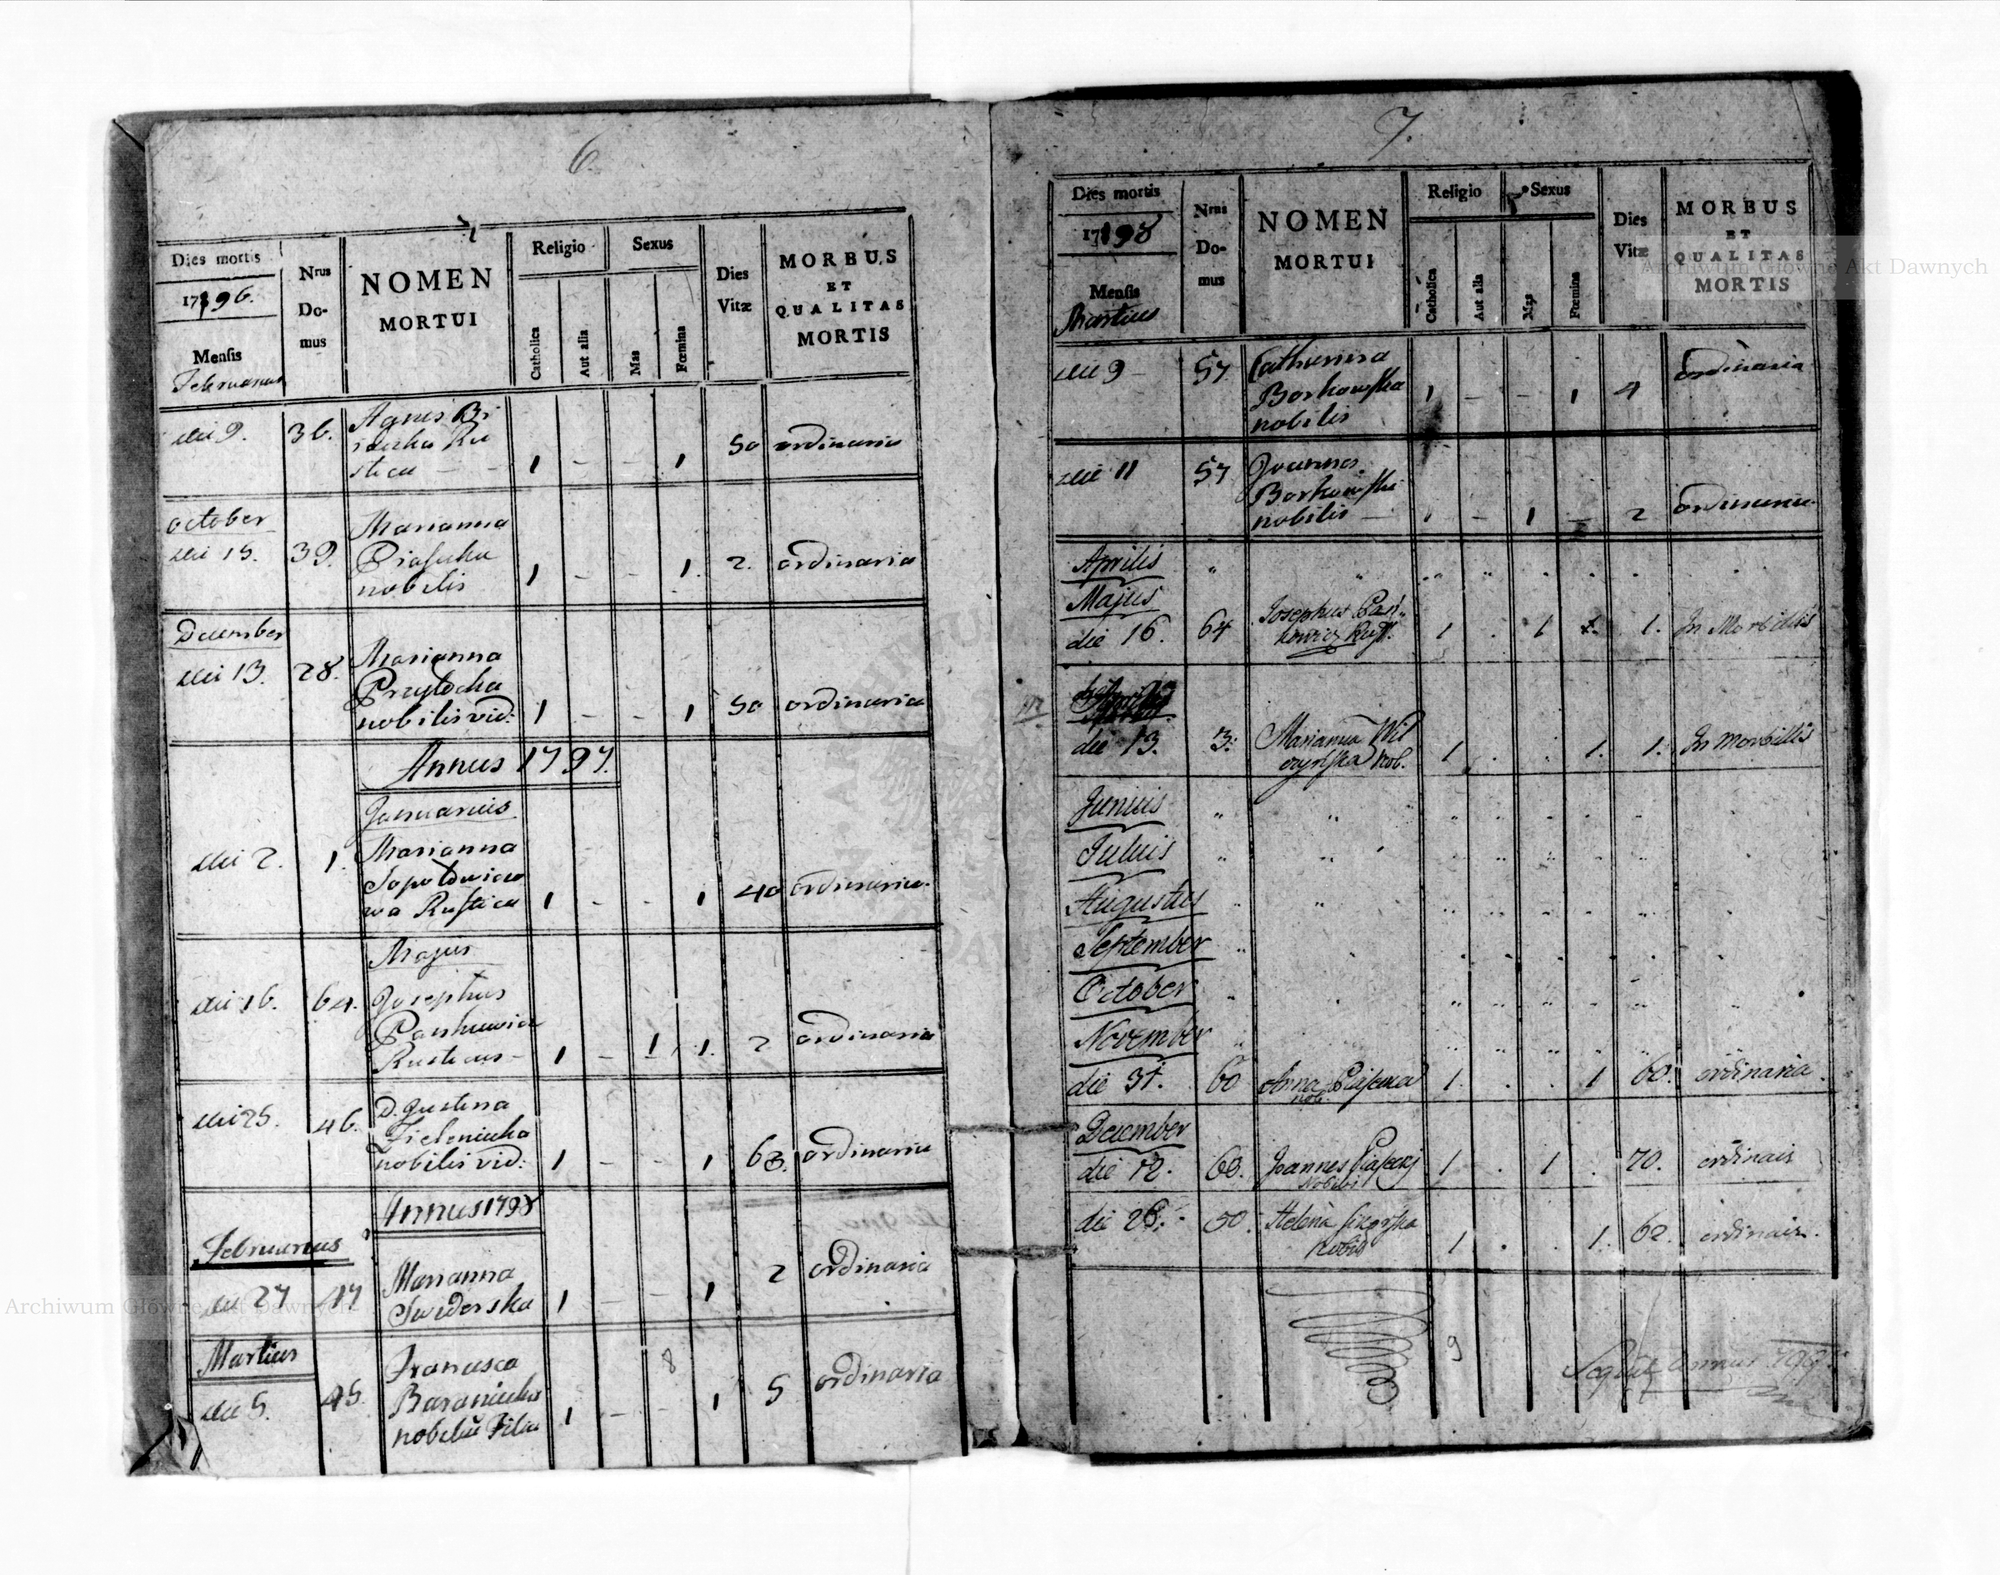 6.
Dies mortis
1796.
Mensis
Februarius
Nrus
Do-
mus
NOMEN
MORTUI
Religio
Catholica
Aut alia
Sexus
Mas
Fœmina
Dies
Vitæ
MORBUS
ET
QUALITAS
MORTIS
die 9. 36. Agnes
Ru
stica - - 1 - - 1 50 ordinaria
October
die 15. 39. Marianna
nobilis 1 - - 1. 2. ordinaria
December
die 13. 28. Marianna
Przytocka
nobilis vid: 1 - - 1 50 ordinaria
Annus 1797.
Januarius
die 2. 1. Marianna
wa Rustica 1 - - 1 40 ordinaria
Majus
die 16. 64. Josephus
Rusticus - 1 - 1 1. 2 ordinaria
die 25. 46. D. Justina
Zieleniecka
nobilis vid: 1 - - 1 63. ordinaria
Annus 1798
Februarius
die 27 17 Marianna
Swiderska 1 - - 1 2 ordinaria
Martius
die 5. 45. Francisca
Baranicka
1 - - 1 5 ordinaria
8
7.
Dies mortis
1798
Mensis
Martius
Nrus
Do-
mus
NOMEN
MORTUI
Religio
Catholica
Aut alia
Sexus
Mas
Fœmina
Dies
Vitæ
MORBUS
ET
QUALITAS
MORTIS
die 9 57 Catharina
Borkowska
nobilis 1 - - 1 4 ordinaria
die 11 57 Joannes
Borkowski
nobilis - 1 - 1 - 2 ordinaria
Aprilis
Majus
die 16. 64 Josephus Pań-
kowicz Rust. 1 . 1 1. In Morbillis
die 13. 3. Marianna Wil
czyńska Nob. 1 . . 1. 1. In Morbillis
Junius
Julius
Augustus
September
October
November
die 31. 60 Anna Piasecka
nob. 1 . . 1 60. ordinaria
December
die 12. 60. Joannes Piasecki
Nobilis 1 . 1 . 70. ordinair
die 26. 50. Helena
Nobilis 1 . . 1. 62. ordinair.
9
Sequit Annus 1799.
Archiwum Główne Akt Dawnych
Archiwum Główne Akt Dawnych